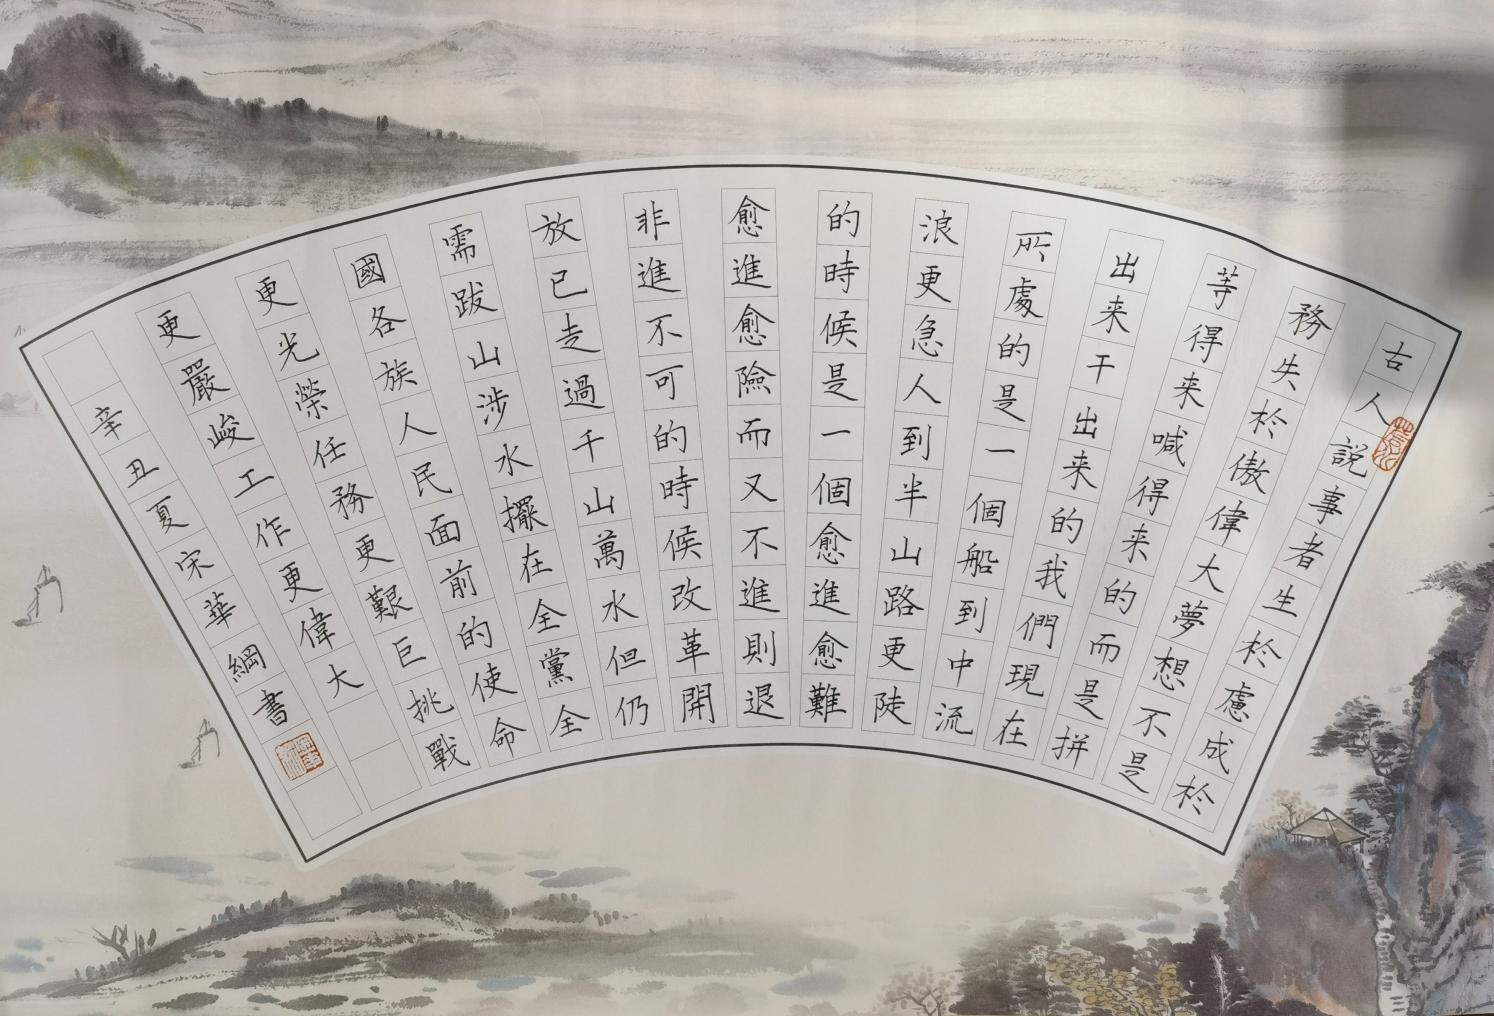 古人説事者生於慮成於
務失於傲偉大夢想不是
等得来喊得来的而是拼
出来干出来的我們現在
所處的是一個船到中流
浪更急人到半山路更陡
的時候是一個愈進愈難
愈進愈險而又不進則退
非進不可的時候改革開
放已走過千山萬水但仍
需跋山涉水擺在全黨全
國各族人民面前的使命
更光榮任務更艱巨挑戰
更嚴峻工作更偉大
辛丑夏宋華綱書